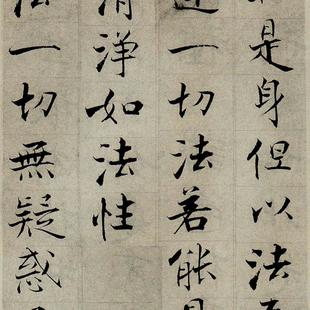 是身但以法
一切法若能
清淨如法性
法一切無疑惑